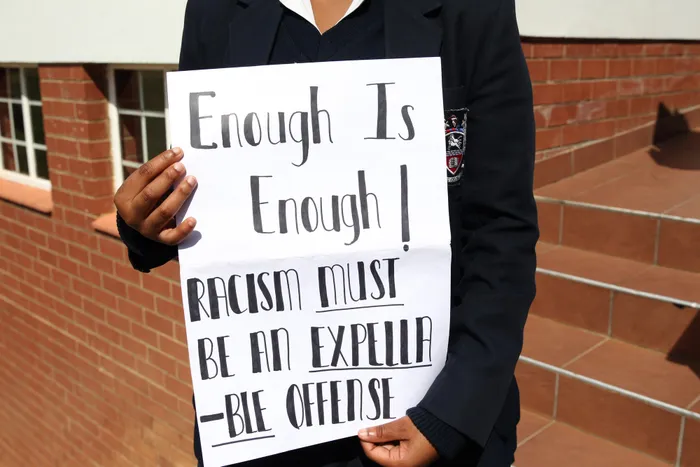 Enough Is
Enough!
RACISM MUST
BE AN EXPELLA
-BLE OFFENSE